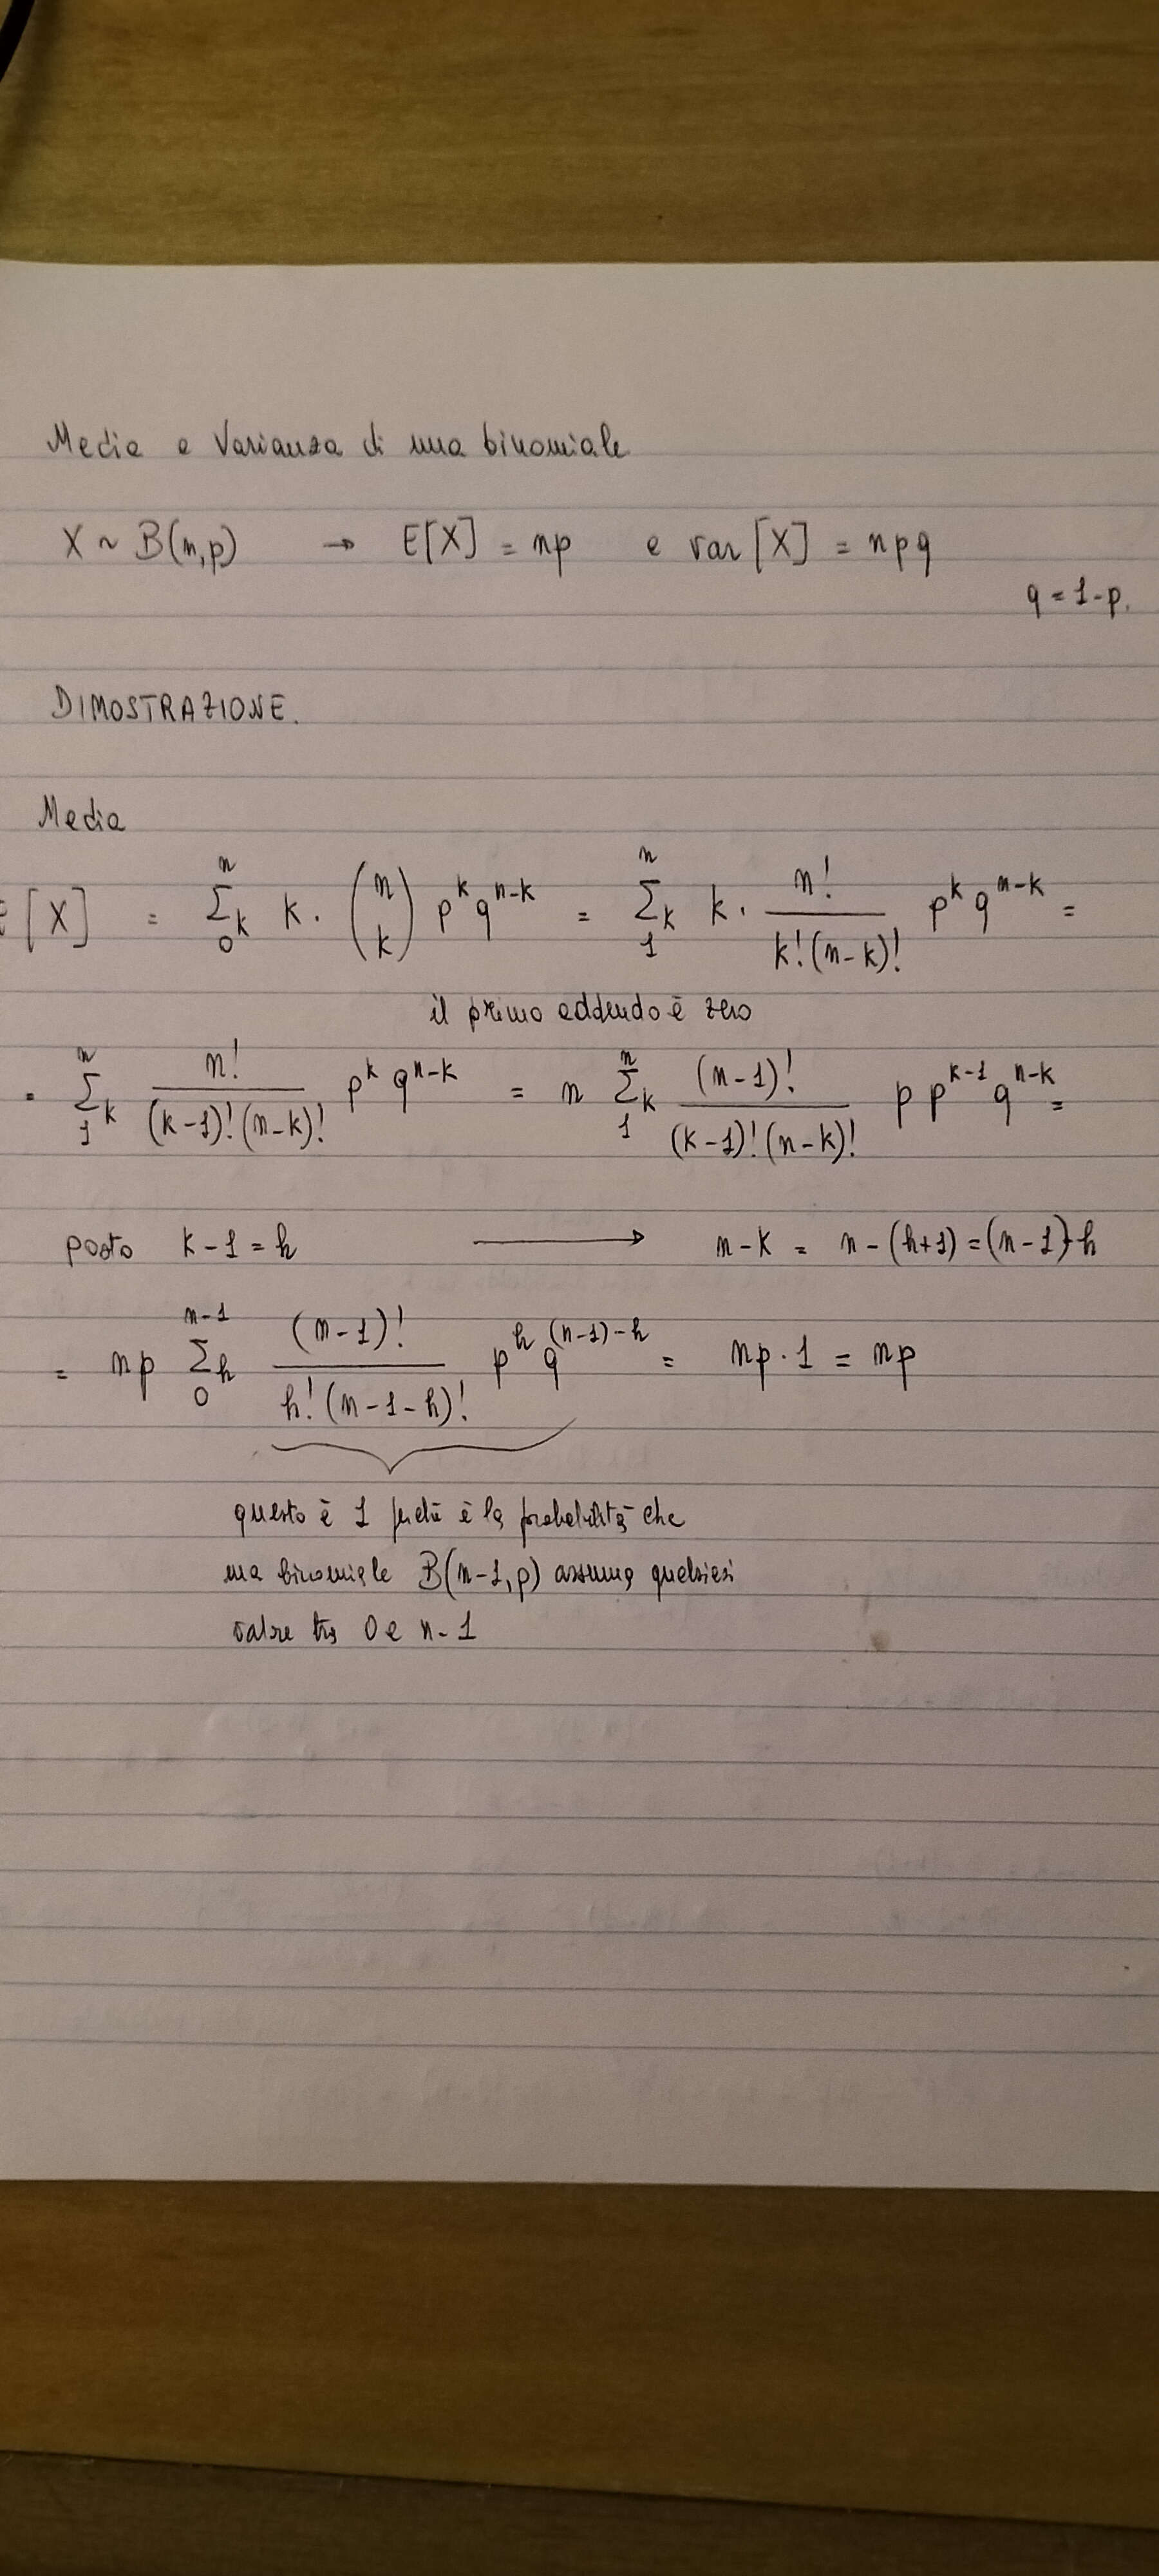 Media e Varianza di una binomiale
X ~ B(n,p) → E[X] = np e var [X] = npq
q = 1-p.
DIMOSTRAZIONE.
Media
E[X] = Σ_k _0^n k · (n k) p^k q^{n-k} = Σ_k _1^n k · n! / k!(n-k)! p^k q^{n-k} =
il primo addendo è zero
= Σ_k _1^n n! / (k-1)!(n-k)! p^k q^{n-k} = n Σ_k _1^n (n-1)! / (k-1)!(n-k)! p p^{k-1} q^{n-k} =
posto k-1 = h → n-k = n-(h+1) = (n-1)-h
= np Σ_h _0^{n-1} (n-1)! / h!(n-1-h)! p^h q^{(n-1)-h} = np · 1 = np
questo è 1 perché è la probabilità che
una binomiale B(n-1,p) assuma qualsiasi
valore tra 0 e n-1